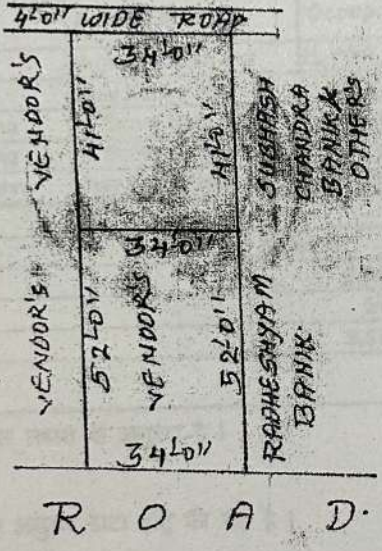 4'-0" WIDE ROAD
34'-0"
VENDOR'S
41'-0"
41'-0"
SUBHASH
CHANDRA
BANIK &
OTHER'S
34'-0"
VENDOR'S
52'-0"
VENDOR'S
52'-0"
RADHESHYAM
BANIK.
34'-0"
R O A D.